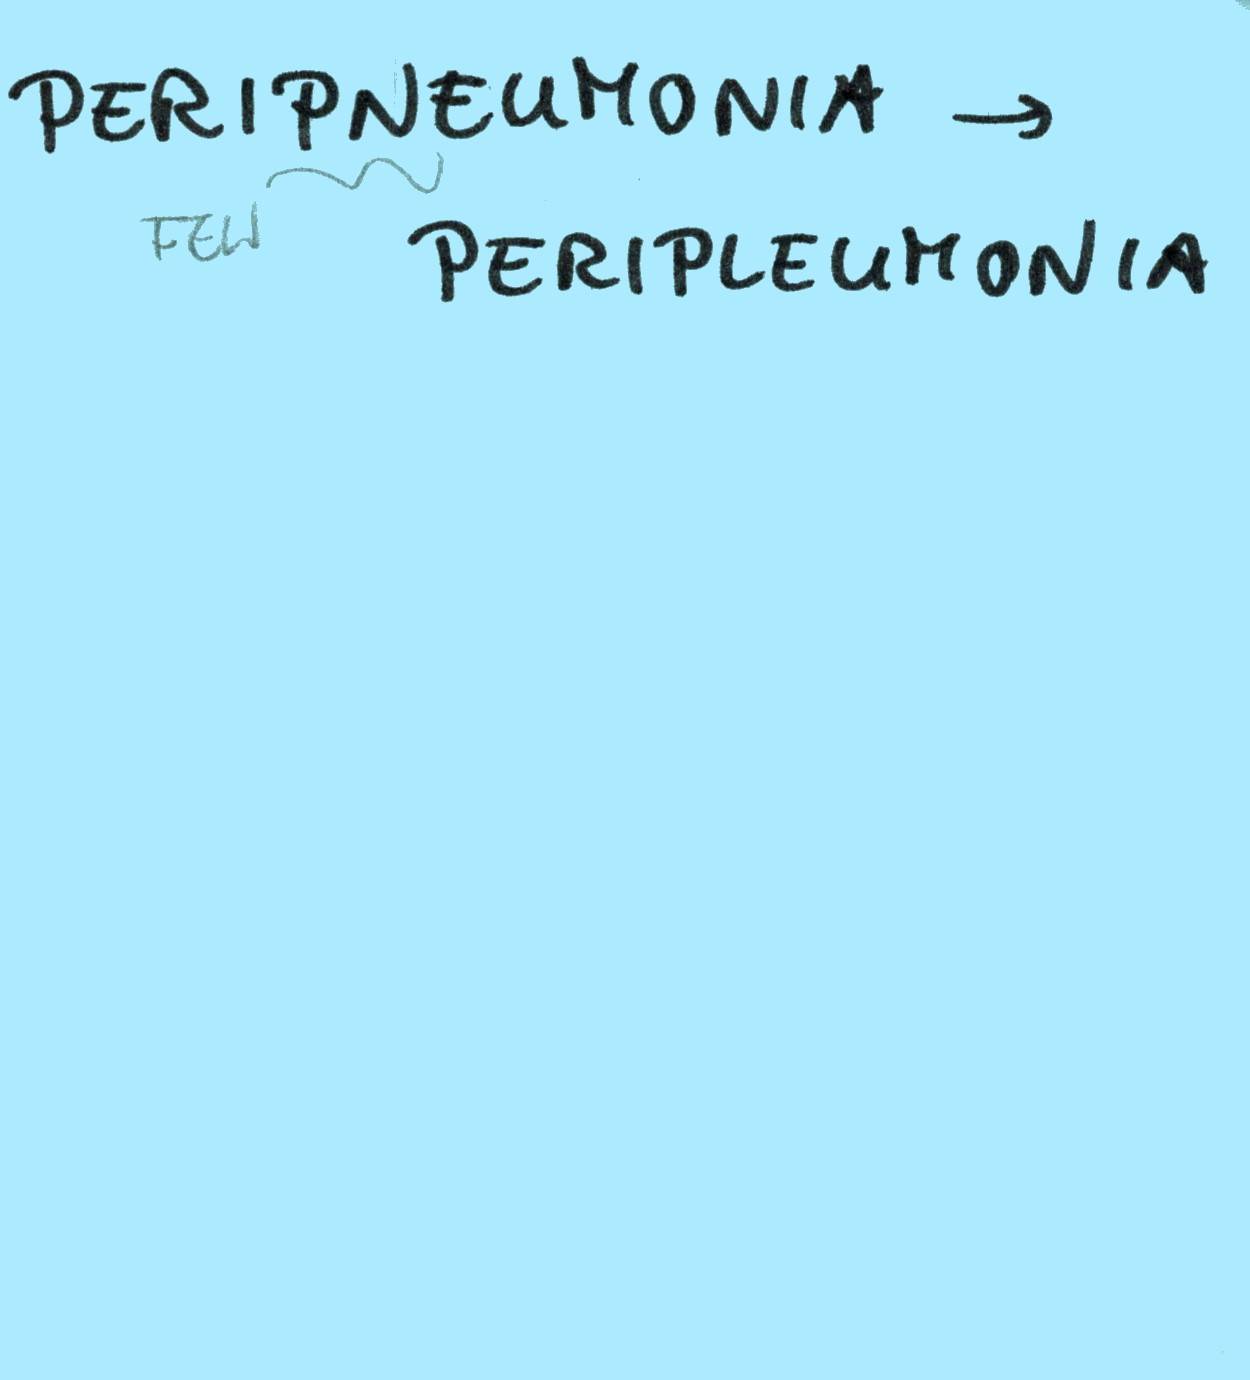 PERIPNEUMONIA →
FEW
PERIPLEUMONIA